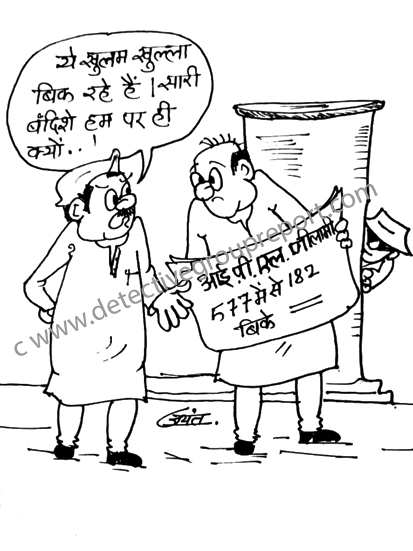 ये खुलम खुल्ला
बिक रहे हैं। सारी
बंदिशे हम पर ही
क्यों..!
आई.पी.एल. नीलामी
577 में से 182
बिके
c www.detectivegroupreport.com
जयंत.